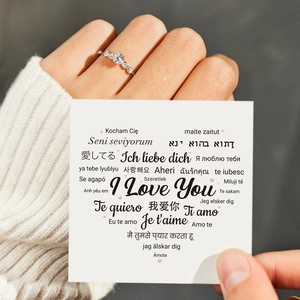 Kocham Cię maite zaitut
Seni seviyorum
愛してる Ich liebe dich Я люблю тебя
ya tebe lyublyu 사랑해요 Aheri ฉันรักคุณ te iubesc
Se agapó Szeretlek Miluji tě
Anh yêu em I Love You Te sakam
Te quiero 我爱你 Jeg elsker dig
Eu te amo Ti amo
Je t'aime Amo te
मैं तुमसे प्यार करता हूं
jag älskar dig
Ámote